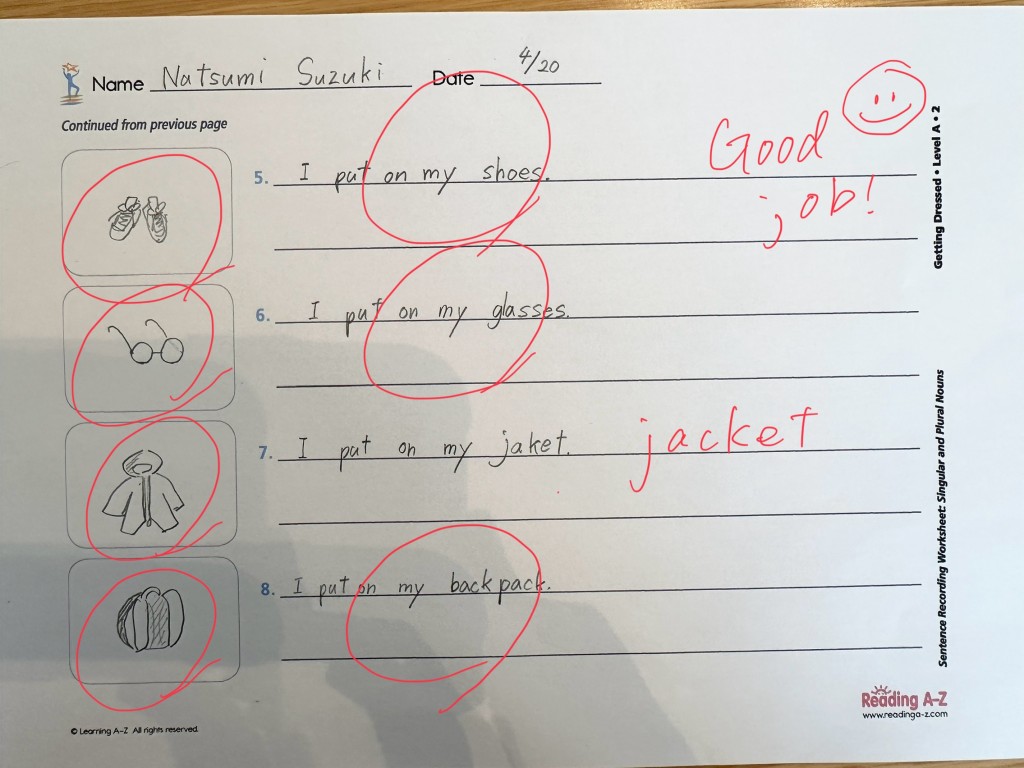 Name Natsumi Suzuki Date 4/20
Continued from previous page
Good
job!
5. I put on my shoes.
6. I put on my glasses.
7. I put on my jaket. jacket
8. I put on my backpack.
Getting Dressed • Level A • 2
Sentence Recording Worksheet: Singular and Plural Nouns
© Learning A–Z All rights reserved.
Reading A-Z
www.readinga-z.com